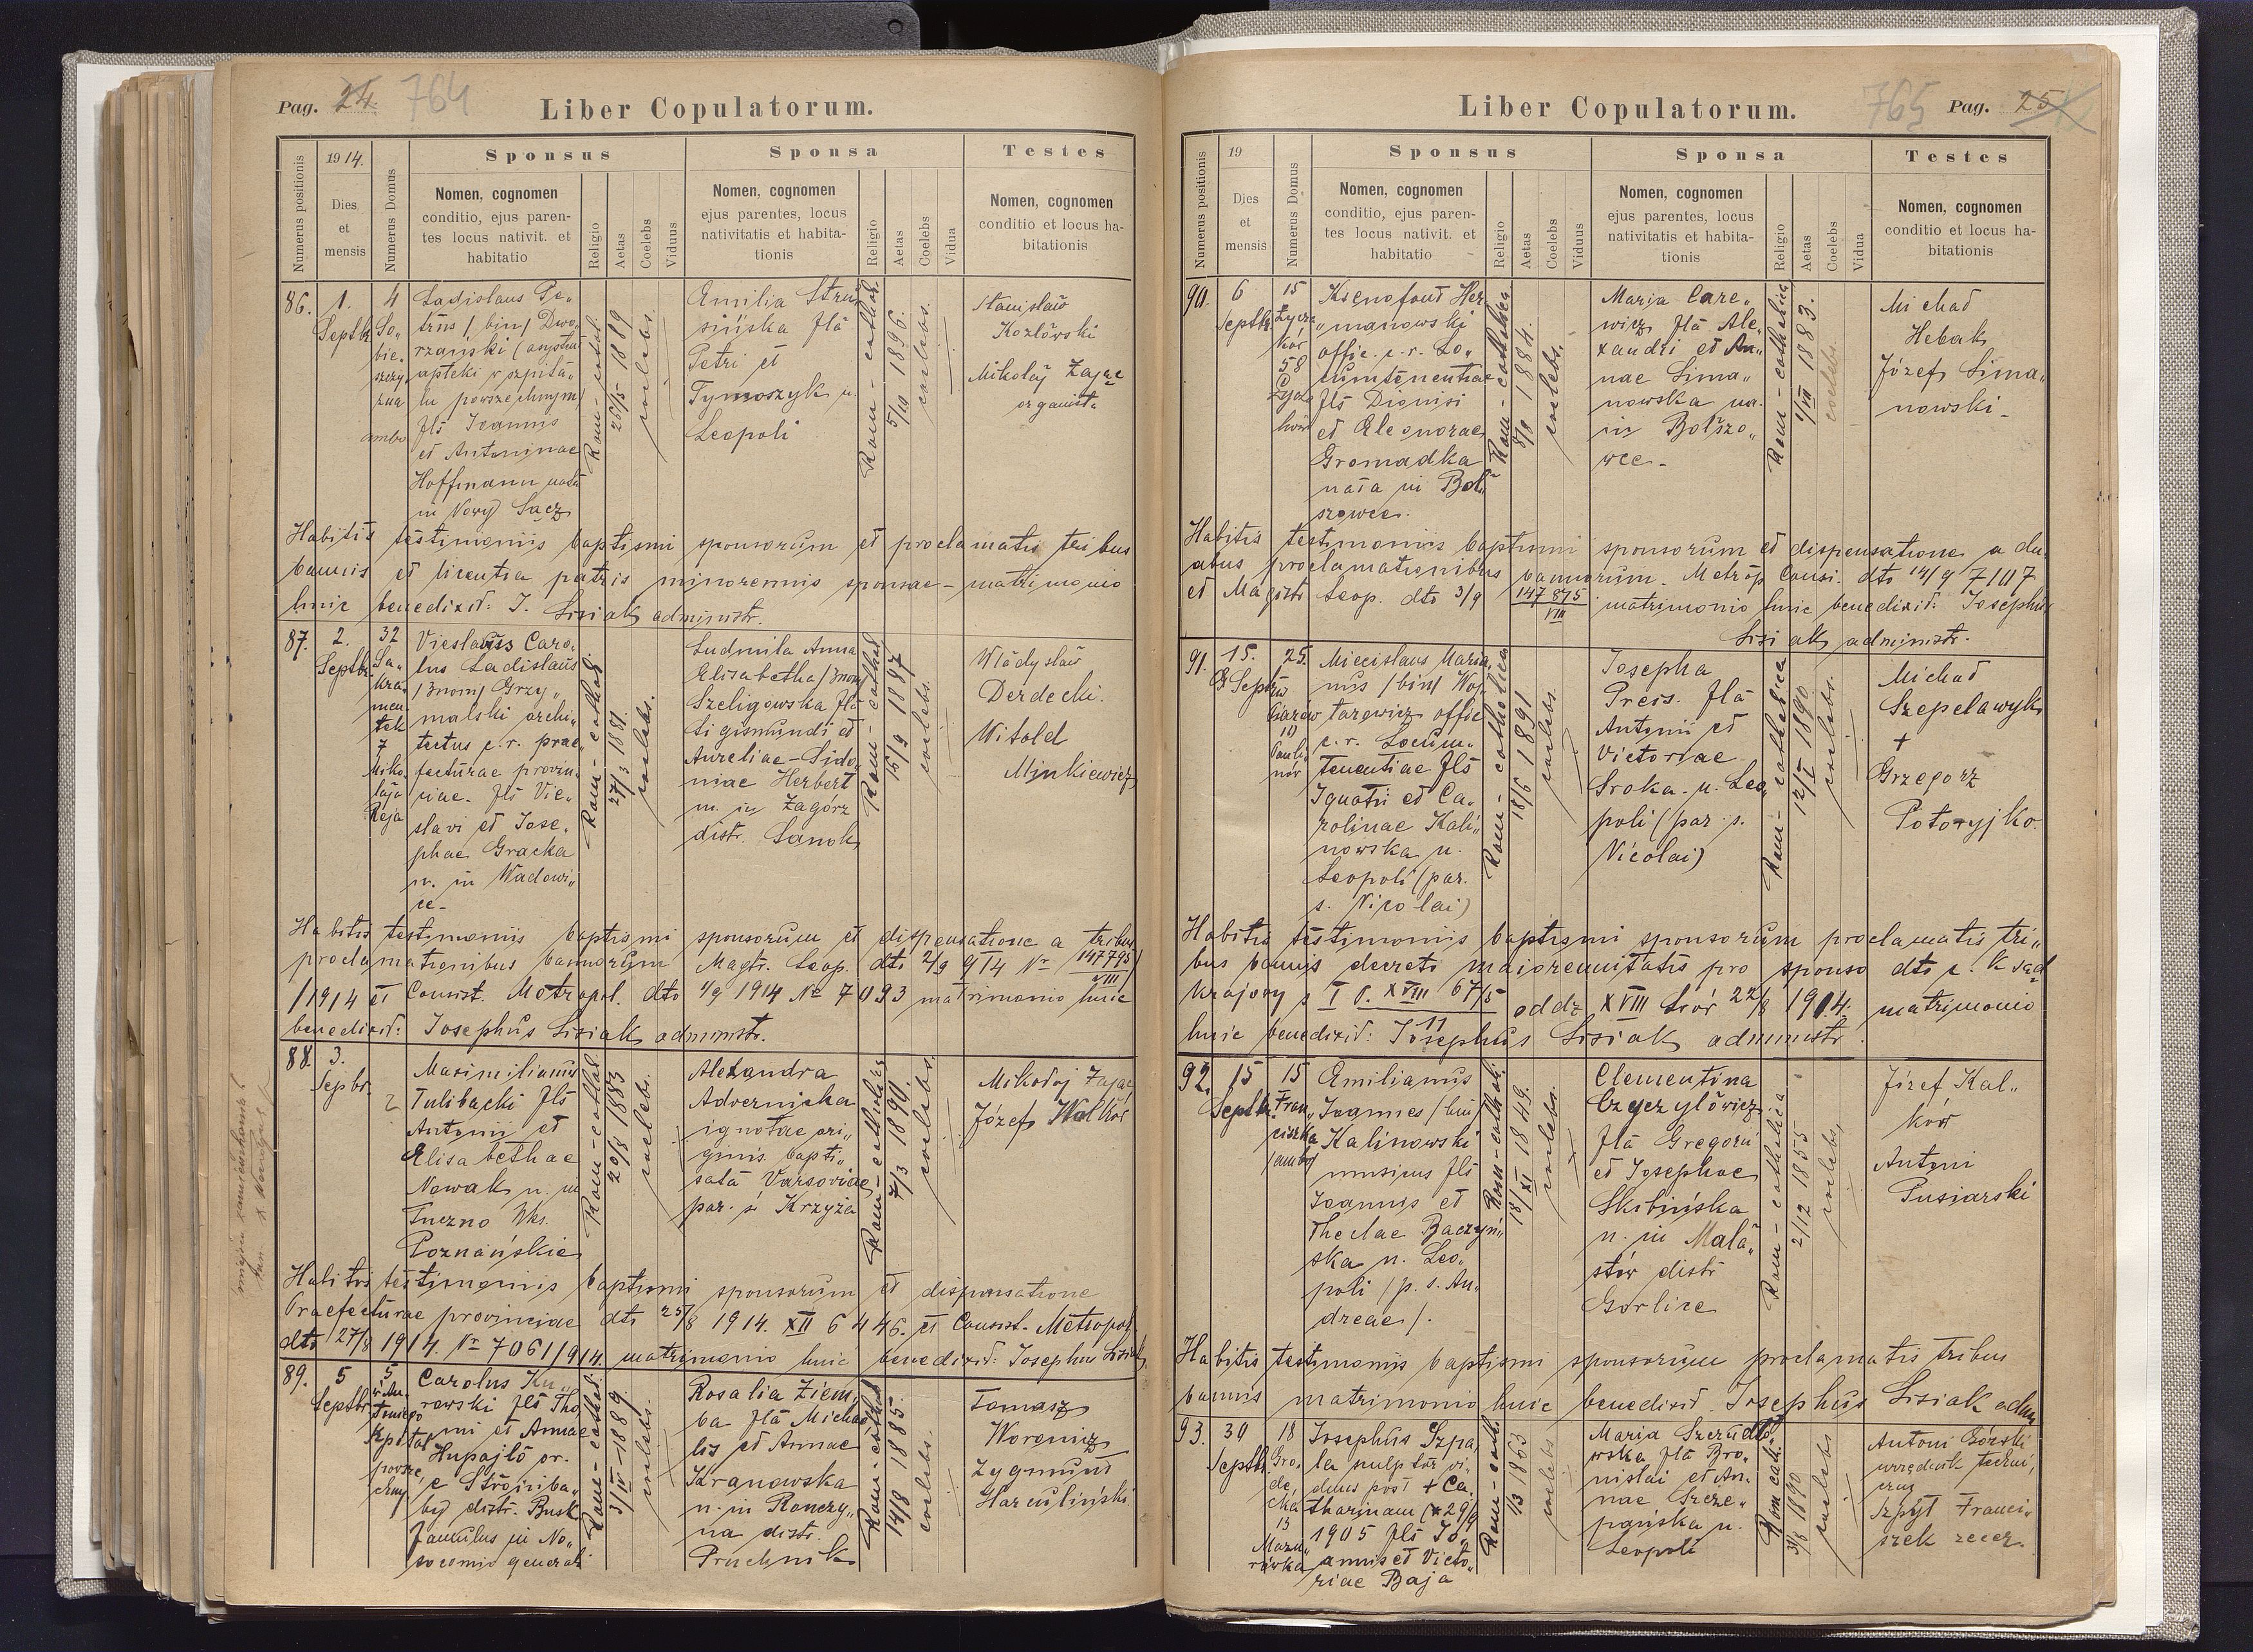 Pag. 24. 764
Liber Copulatorum.
Numerus positionis
1914.
Dies
et
mensis
Numerus Domus
Sponsus
Nomen, cognomen
conditio, ejus paren-
tes locus nativit. et
habitatio
Religio
Aetas
Coelebs
Viduus
Sponsa
Nomen, cognomen
ejus parentes, locus
nativitatis et habita-
tionis
Religio
Aetas
Coelebs
Vidua
Testes
Nomen, cognomen
conditio et locus ha-
bitationis
86.
1.
Septbr
4
So„
bie„
szczy„
zna
ambo
Ladislaus Pe„
trus / bin / Dwo„
rzański (asystent
apteki w szpita„
lu powszechnym)
fls Joannis
et Antoninae
Hoffmann nat
in Nowy Sącz
Rom-cathol.
25/5 1889
coelebs.
Amilia Stru„
sińska fla
Petri et
Tymoszyk n.
Leopoli
Rom-cathol.
5/10 1896.
coelebs.
Stanisław
Kozłowski
Mikołaj Zając
organista
Habitis testimoniis baptismi sponsorum et proclamatis tribus
bannis et licentia patris minorennis sponsae - matrimonio
huic benedixit: J. Lisiak administr.
87.
2.
Septbr
32
Sa„
kra„
men„
tek
7
Miko„
łaja
Reja
Vieslaus Caro„
lus Ladislaus
/3nom/ Grzy„
malski archi„
tectus c.r. prae„
fecturae provin„
ciae. fls Vie„
slavi et Jose„
phae Gracka
n. in Wadowi„
ce-
Rom-cathol.
27/3 1881.
coelebs.
Ludmila Anna
Elisabetha /3nom/
Szeligowska fla
Sigismundi et
Aureliae-Sido„
niae Herbert
n. in Zagórz
distr. Sanok
Rom-cathol
15/9 1887
coelebs.
Władysław
Derdecki.
Witold
Minkiewicz
Habitis testimoniis baptismi sponsorum et dispensatione a tribus
proclamationibus bannorum Magtr. Leop. dto 2/9 914 Nr 147795/VIII
/1914 et Consist. Metropol. dto 1/9 1914 No 7093 matrimonio huic
benedixit: Josephus Lisiak administr.
88.
3.
Sepbr.
Maximilianus
Tulibacki fls
Antonii et
Elisabethae
Nowak n. in
Gnezno Wks.
Poznańskie
Rom-cathol
20/8 1883
coelebs.
Alexandra
Adverniska
ignotae ori„
ginis bapti„
sata Varsoviae
par. ś Krzyża
Rom-catholica
7/3 1890.
coelebs.
Mikołaj Zając
Józef Wołkor
Habitis testimoniis baptismi sponsorum et dispensatione
Praefecturae provinciae dto 25/8 1914. XII 6446. et Consist. Metropol
dto 27/8 1914. Nr 7061/914. matrimonio huic benedixit: Josephus Lisiak
89.
5
Septbr
5
Szpital
Carolus Ku„
rowski fls Tho„
mi et Annae
Hupajło or.
e Stroniba„
by distr. Busk
famulus in No„
socomio generali
Rom-cathol.
3/IV-1889.
coelebs.
Rosalia Ziem„
ba fla Michae„
lis et Annae
Kranowska
n. in Rączy„
na distr.
Pruchnik
Rom-cathol
14/8 1885.
coelebs.
Tomasz
Woronicz
Zygmunt
Harculiński
765 Pag. 25
Liber Copulatorum.
Numerus positionis
19
Dies
et
mensis
Numerus Domus
Sponsus
Nomen, cognomen
conditio, ejus paren-
tes locus nativit. et
habitatio
Religio
Aetas
Coelebs
Viduus
Sponsa
Nomen, cognomen
ejus parentes, locus
nativitatis et habita-
tionis
Religio
Aetas
Coelebs
Vidua
Testes
Nomen, cognomen
conditio et locus ha-
bitationis
90.
6
Septbr.
15
Łycza
ków
58
Ksenofont Her
„manowski
offic. c.r. Lo„
cumtenentiae
fls Dionisi
et Eleonorae
Gromadka
nata in Boł„
szowce.
Rom-catholica
8/8 1884.
coelebs.
Maria Care„
wicz fla Ale„
xandri et An„
nae Sima„
nowska na.
in Bołszo„
wce-
Rom-catholica
1/VII 1883.
coelebs.
Michał
Hebak
Józef Sima„
nowski-
Habitis testimoniis baptismi sponsorum et dispensatione a du„
abus proclamationibus bannorum. Metrop Consi. dto 14/9 7117
et Magistr Leop. dto 3/9 147875/VIII matrimonio huic benedixit: Josephus
Lisiak administr.
91.
15.
Septbr
25.
19
Pauli„
nów
Miecislaus Maria„
nus /bin/ Woj„
tarowicz offic
c.r. Locum„
tenentiae fls
Ignatii et Ca„
rolinae Kali„
nowska n.
Leopoli (par.
s. Nicolai)
Rom-catholica
18/6 1891
coelebs.
Josepha
Preis. fla
Antonii et
Victoriae
Sroka. n. Leo„
poli (par. s.
Nicolai)
Rom-catholica
12/V 1890
coelebs.
Michał
Szepelawyk
+
Grzegorz
Potoryjko.
Habitis testimoniis baptismi sponsorum proclamatis tri„
bus bannis decreto maiorennitatis pro sponso dto c. k sąd
krajowy I P. XVIII 67/5 oddz XVIII Lwów 22/8 1914. matrimonio
11
huic benedixit: Josephus Lisiak administr.
92.
15
Septbr.
15
Fran„
ciszka
/ambo/
Emilianus
Joannes /bin
Kalinowski
musicus fls
Joannis et
Theclae Baczyń„
ska n. Leo„
poli /p. s. An„
dreae/.
Rom-cathol.
18/XI 1849.
coelebs.
Clementina
Czyczyłowicz
fla Gregorii
et Josephae
Skibińska
n. in Mała„
stów distr
Gorlice
Rom-catholica
2/12 1855
coelebs,
Józef Kal„
ków
Antoni
Pusiarski
Habitis testimoniis baptismi sponsorum proclamatis tribus
bannis matrimonio huic benedixit. Josephus Lisiak adm
93.
30
Septb.
18
Gro„
de„
cka
13
Mazu„
rówka
Josephus Szpa„
la sculptor vi„
duus post + Ca„
tharinam (+29/9
1905 fls Jo„
annis et Victo„
riae Baja
Rom-cath.
1/3 1863
coelebs
Maria Szczudło„
wska fla Bro„
nislai et An„
nae Szcze„
pańska n.
Leopoli
Rom cath.
3/8 1890
coelebs
Antoni Górski
urzędnik techni„
czny
Szpyt Franci„
szek zecer.